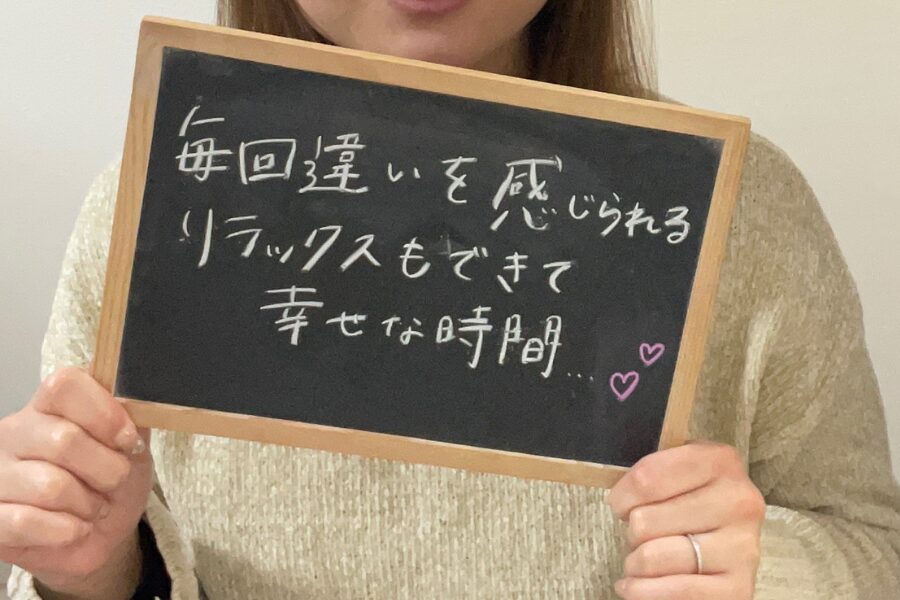 毎回違いを感じられる
リラックスもできて
幸せな時間...